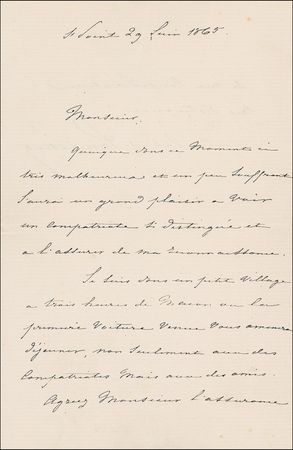 St Point 29 Juin 1865.
Monsieur,
Quoique dans ce Moment ci
très malheureux et un peu Souffrant
J'aurai un grand plaisir a Voir
un compatriote si distinguée et
a l'assurer de ma reconnaissance.
Je suis dans un petit Village
a trois heures de Macon ou la
première Voiture Venue Vous amenera
déjeuner, non Seulement avec des
Compatriotes Mais avec des amis.
Agreez Monsieur l'assurance